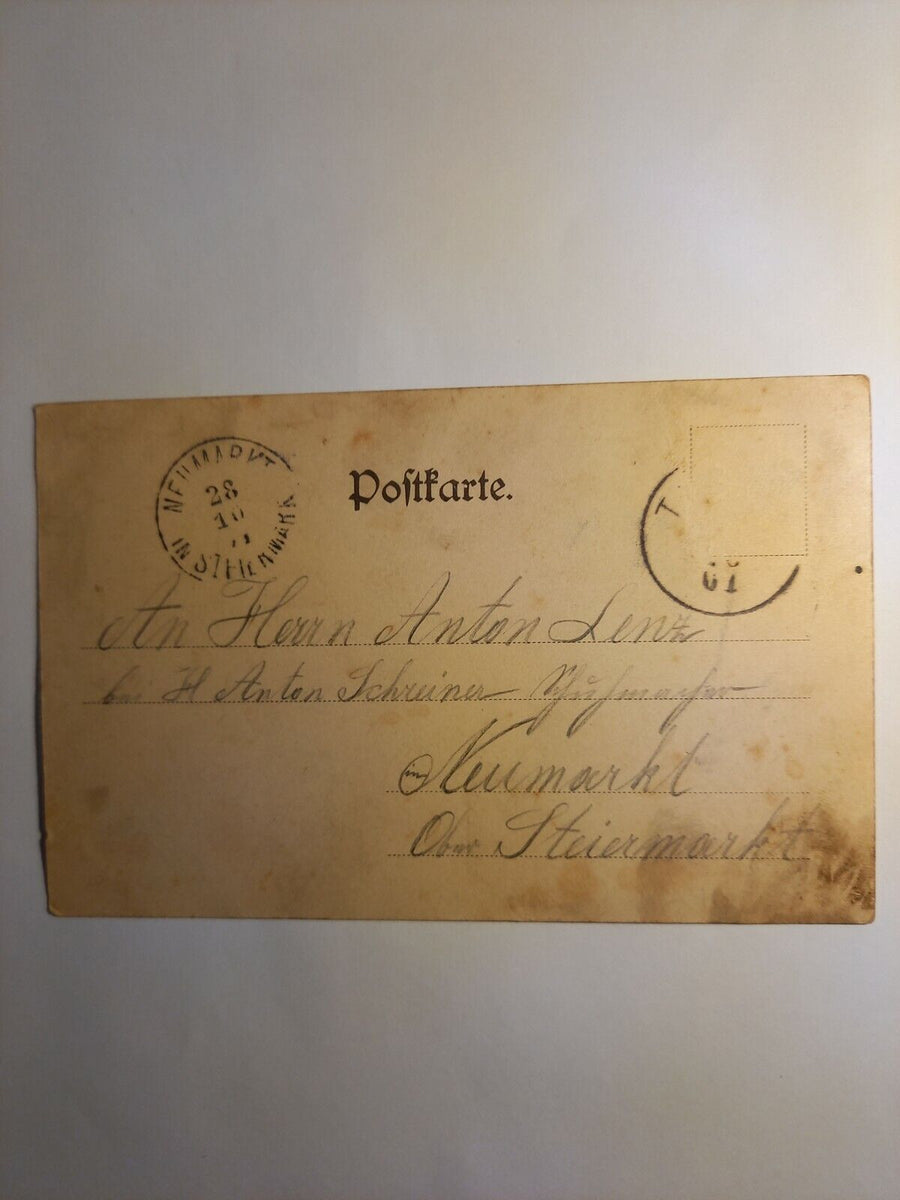 Postkarte.
NEUMARKT
28
10
IN STEIERMARK
T
01
An Herrn Anton Lenz
bei H Anton Schreiner Schuhmacher
in Neumarkt
Ober Steiermarkt